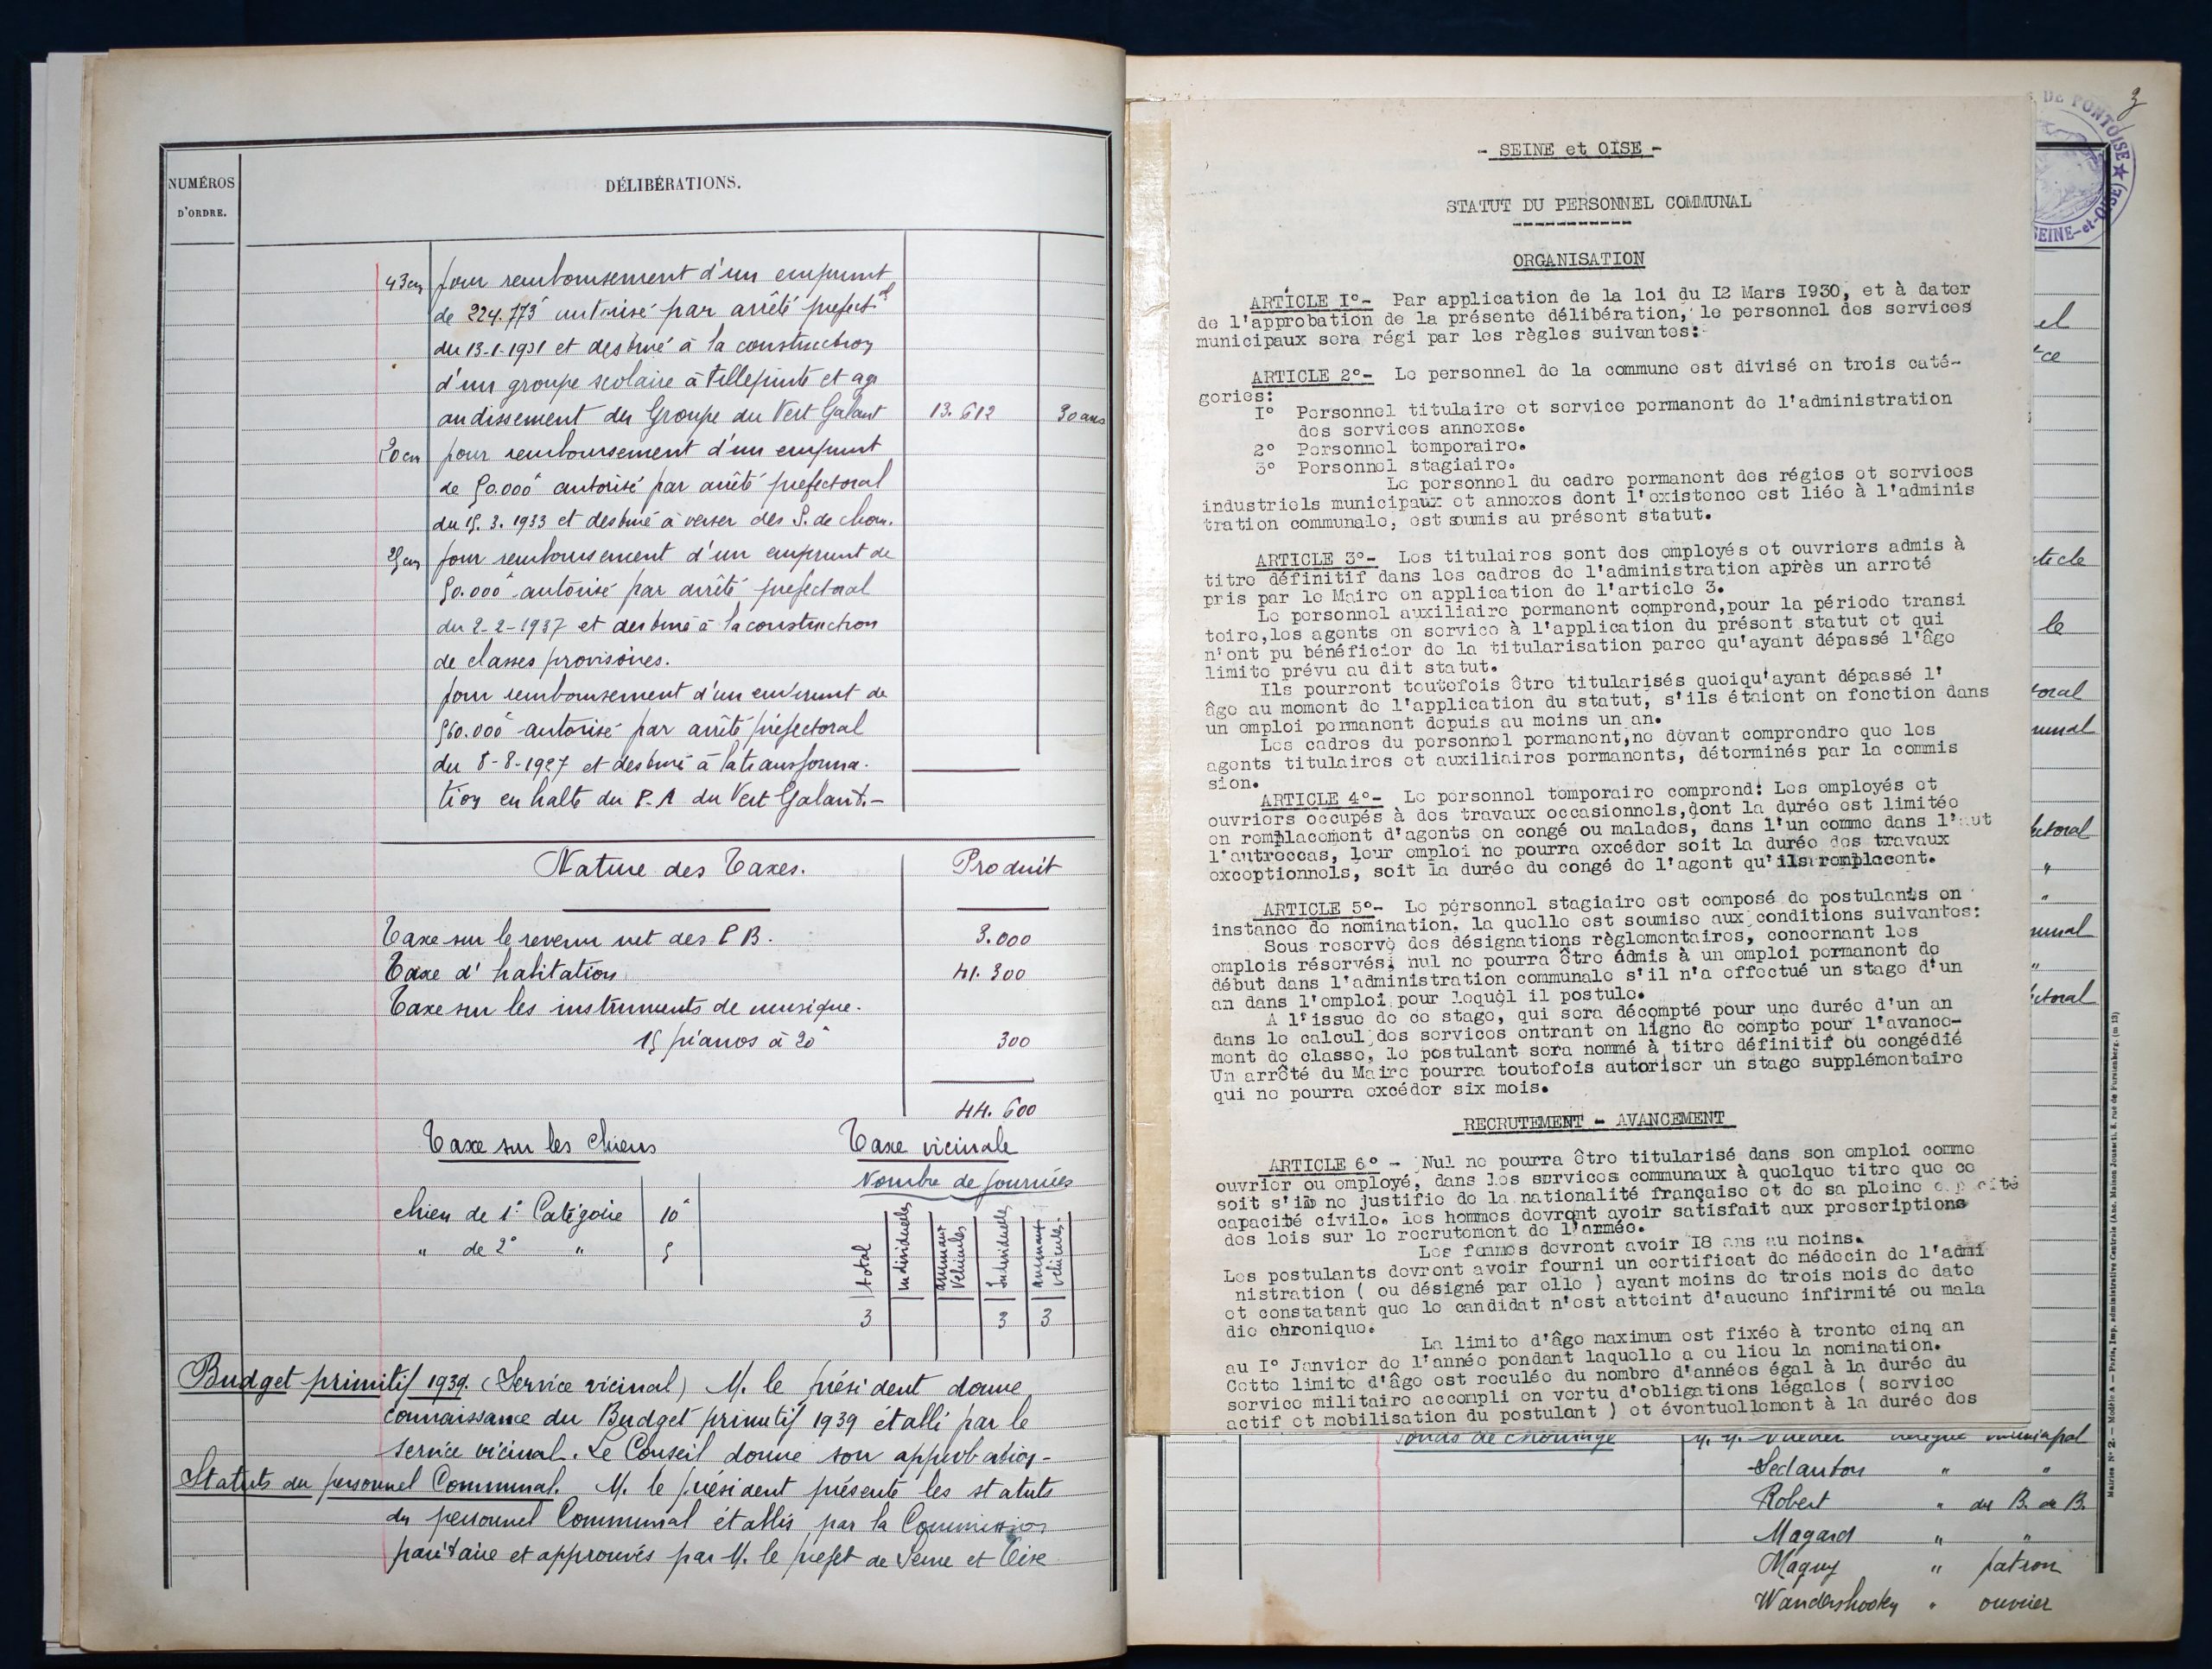 NUMÉROS
D'ORDRE.
DÉLIBÉRATIONS.
43 cm pour remboursement d'un emprunt
de 224.773f autorisé par arrêté préfectal
du 13-1-1931 et destiné à la construction
d'un groupe scolaire à Villepinte et ag
andissement du Groupe du Vert Galant 13.612 30 ans
20 cm pour remboursement d'un emprunt
de 50.000f autorisé par arrêté préfectoral
du 15.3.1933 et destiné à verser des S. de chom.
25 cm pour remboursement d'un emprunt de
50.000f autorisé par arrêté préfectoral
du 2-2-1937 et destiné à la construction
de classes provisoires.
pour remboursement d'un emprunt de
560.000f autorisé par arrêté préfectoral
du 8-8-1927 et destiné à la transforma-
tion en halte du P.A du Vert Galant.-
Nature des Taxes. Produit
Taxe sur le revenu net des P B. 3.000
Taxe d'habitation 41.300
Taxe sur les instruments de musique.
15 pianos à 20f 300
44.600
Taxe sur les chiens
chien de 1e Catégorie 10f
" de 2e " 5
Taxe vicinale
Nombre de journées
total individuelles animaux véhicules individuelles animaux véhicules.
3 3 3
Budget primitif 1939. (Service vicinal) M. le président donne
connaissance du Budget primitif 1939 établi par le
service vicinal. Le Conseil donne son approbation-
Statuts du personnel Communal. M. le président présente les statuts
du personnel Communal établis par la Commission
paritaire et approuvés par M. le préfet de Seine et Oise
3
DE PONTOISE ★
SEINE-et-OISE)
- SEINE et OISE -
STATUT DU PERSONNEL COMMUNAL
ORGANISATION
ARTICLE I°- Par application de la loi du I2 Mars I930, et à dater
de l'approbation de la présente délibération, le personnel des services
municipaux sera régi par les règles suivantes:
ARTICLE 2°- Le personnel de la commune est divisé en trois caté-
gories:
I° Personnel titulaire et service permanent de l'administration
des services annexes.
2° Personnel temporaire.
3° Personnel stagiaire.
Le personnel du cadre permanent des régies et services
industriels municipaux et annexes dont l'existence est liée à l'adminis
tration communale, est soumis au présent statut.
ARTICLE 3°- Les titulaires sont des employés et ouvriers admis à
titre définitif dans les cadres de l'administration après un arreté
pris par le Maire en application de l'article 3.
Le personnel auxiliaire permanent comprend,pour la période transi
toire,les agents en service à l'application du présent statut et qui
n'ont pu bénéficier de la titularisation parce qu'ayant dépassé l'âge
limite prévu au dit statut.
Ils pourront toutefois être titularisés quoiqu'ayant dépassé l'
âge au moment de l'application du statut, s'ils étaient en fonction dans
un emploi permanent depuis au moins un an.
Les cadres du personnel permanent,ne devant comprendre que les
agents titulaires et auxiliaires permanents, déterminés par la commis
sion.
ARTICLE 4°- Le personnel temporaire comprend: Les employés et
ouvriers occupés à des travaux occasionnels,dont la durée est limitée
en remplacement d'agents en congé ou malades, dans l'un comme dans l'aut
l'autreccas, leur emploi ne pourra excéder soit la durée des travaux
exceptionnels, soit la durée du congé de l'agent qu'ils remplacent.
ARTICLE 5°- Le personnel stagiaire est composé de postulants en
instance de nomination. la quelle est soumise aux conditions suivantes:
Sous reserve des désignations règlementaires, concernant les
emplois réservés, nul ne pourra être admis à un emploi permanent de
début dans l'administration communale s'il n'a effectué un stage d'un
an dans l'emploi pour lequel il postule.
A l'issue de ce stage, qui sera décompté pour une durée d'un an
dans le calcul des services entrant en ligne de compte pour l'avance-
ment de classe, le postulant sera nommé à titre définitif ou congédié
Un arrêté du Maire pourra toutefois autoriser un stage supplémentaire
qui ne pourra excéder six mois.
RECRUTEMENT - AVANCEMENT
ARTICLE 6° - Nul ne pourra être titularisé dans son emploi comme
ouvrier ou employé, dans les services communaux à quelque titre que ce
soit s'il ne justifie de la nationalité française et de sa pleine
capacité civile. les hommes devront avoir satisfait aux prescriptions
des lois sur le recrutement de l'armée.
Les femmes devront avoir I8 ans au moins.
Les postulants devront avoir fourni un certificat de médecin de l'admi
nistration ( ou désigné par elle ) ayant moins de trois mois de date
et constatant que le candidat n'est atteint d'aucune infirmité ou mala
die chronique.
La limite d'âge maximum est fixée à trente cinq an
au I° Janvier de l'année pendant laquelle a eu lieu la nomination.
Cette limite d'âge est reculée du nombre d'années égal à la durée du
service militaire accompli en vertu d'obligations légales ( service
actif et mobilisation du postulant ) et éventuellement à la durée des
el
ce
article
le
toral
munal
ectoral
"
"
munal
"
ectoral
fonds de chômage délégué municipal
Sedanton " "
Robert " du B. de B.
Magard " "
Maguy " patron
Wandershooky " ouvrier
Mairies N° 2. — Modèle A — Paris, Imp. administrative Centrale (Anc. Maison Jousset). 8, rue de Furstenberg. (m 13)